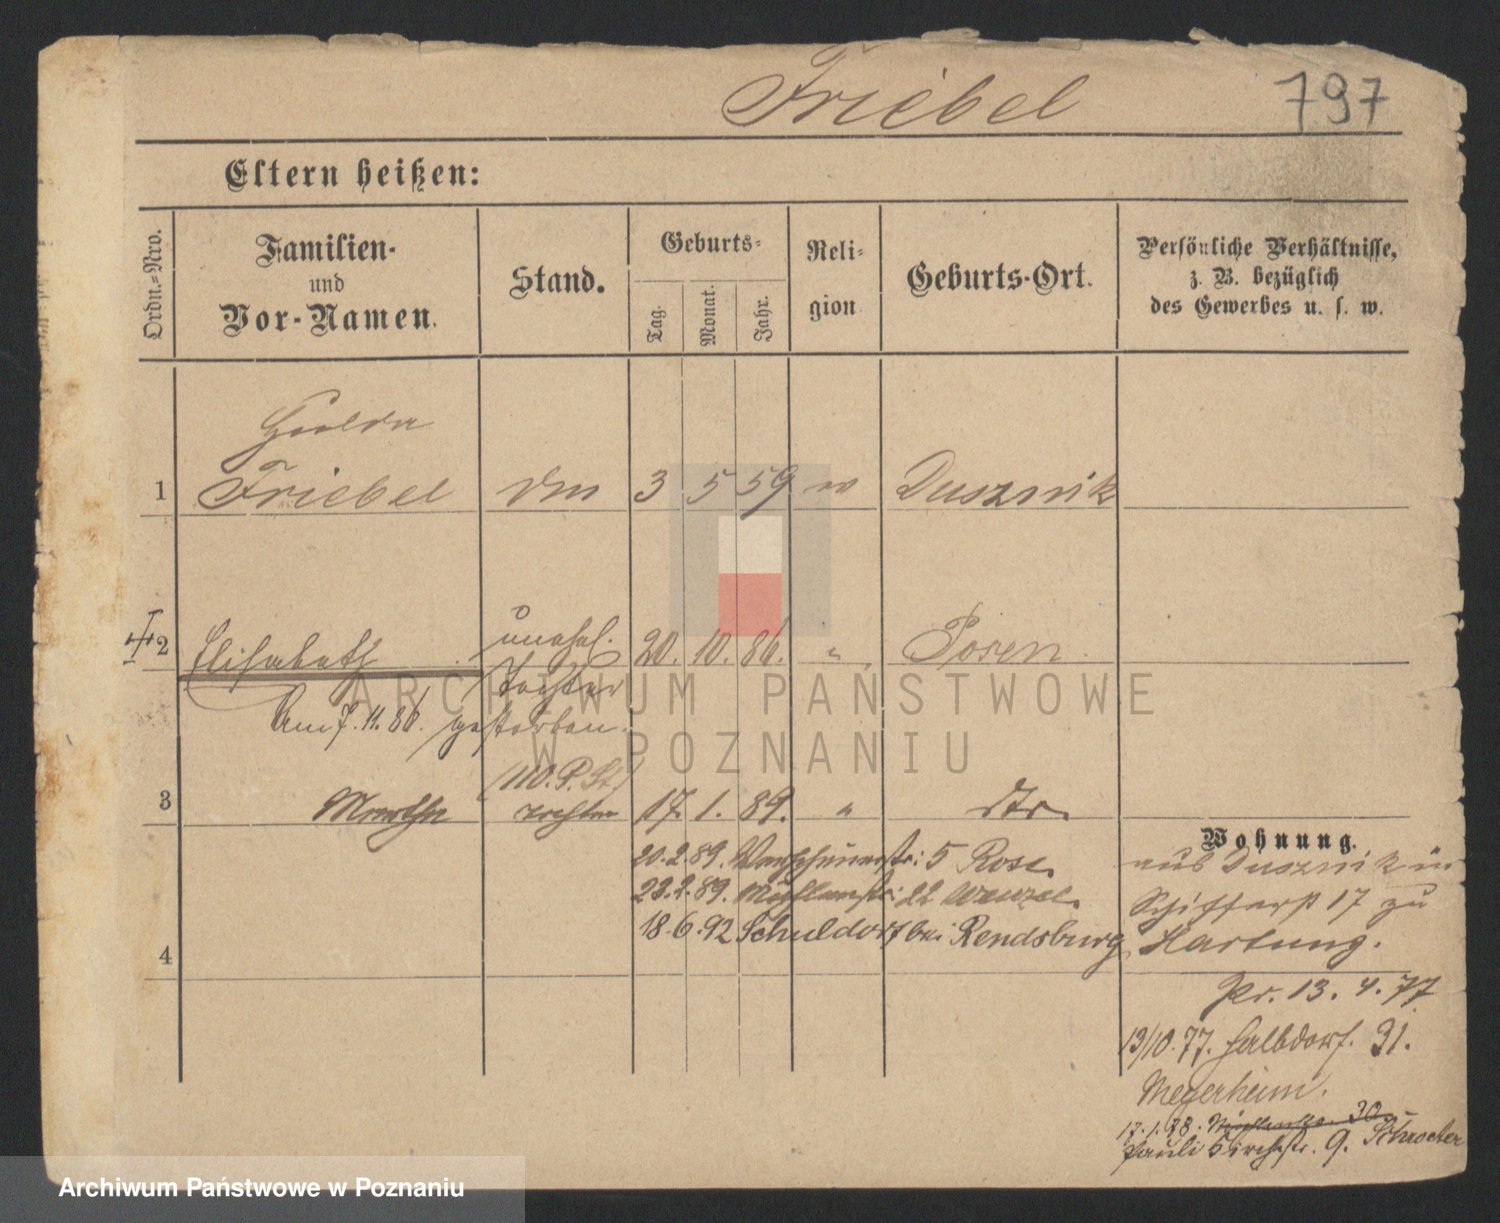 Friebel 797
Eltern heißen:
Ordn.=Nro.
Familien-
und
Vor-Namen.
Stand.
Geburts=
Tag.
Monat.
Jahr.
Reli=
gion
Geburts-Ort.
Persönliche Verhältnisse,
z. B. bezüglich
des Gewerbes u. s. w.
Hulda
1 Friebel 3 5 59 Dusznik
2 Elisabeth unehel. 20. 10. 86. " Posen
Tochter
Am 7. 11. 86. gestorben.
(110. P. St.)
3 Martha Tochter 17. 1. 89. " dto.
Wohnung.
20. 2. 89. 5 Rose
aus Dusznik in
22 Wenzel.
Schifferst 17 zu
4 18. 6. 92 Schuldorf bei Rendsburg
Hartung.
Pr. 13. 4. 77
13/10. 77. Halbdorf. 31.
Meyerheim.
17. 1. 78. 30
Pauli Kirchstr. 9. Schroeter
ARCHIWUM PAŃSTWOWE
W POZNANIU
Archiwum Państwowe w Poznaniu